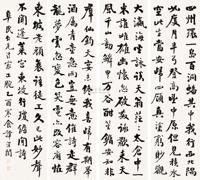 四州環一島百洞蟠其中我行西北
隅如度月半弓登高望中原但見積水
空此生當安歸四顧真途窮眇觀
大瀛海坐詠談天翁茫茫太倉中
一米誰雌雄幽懷忽破散詠嘯來天
風千山動鱗甲萬谷酣笙鐘安知非
群仙鈞天宴未終喜我歸有期舉
酒屬青童急雨豈無意催詩走群
龍夢雲忽變色笑電亦改容應怪
東坡老顏衰語徒工久矣此妙聲
不聞蓬萊宮
阜民 寒食譚延闓